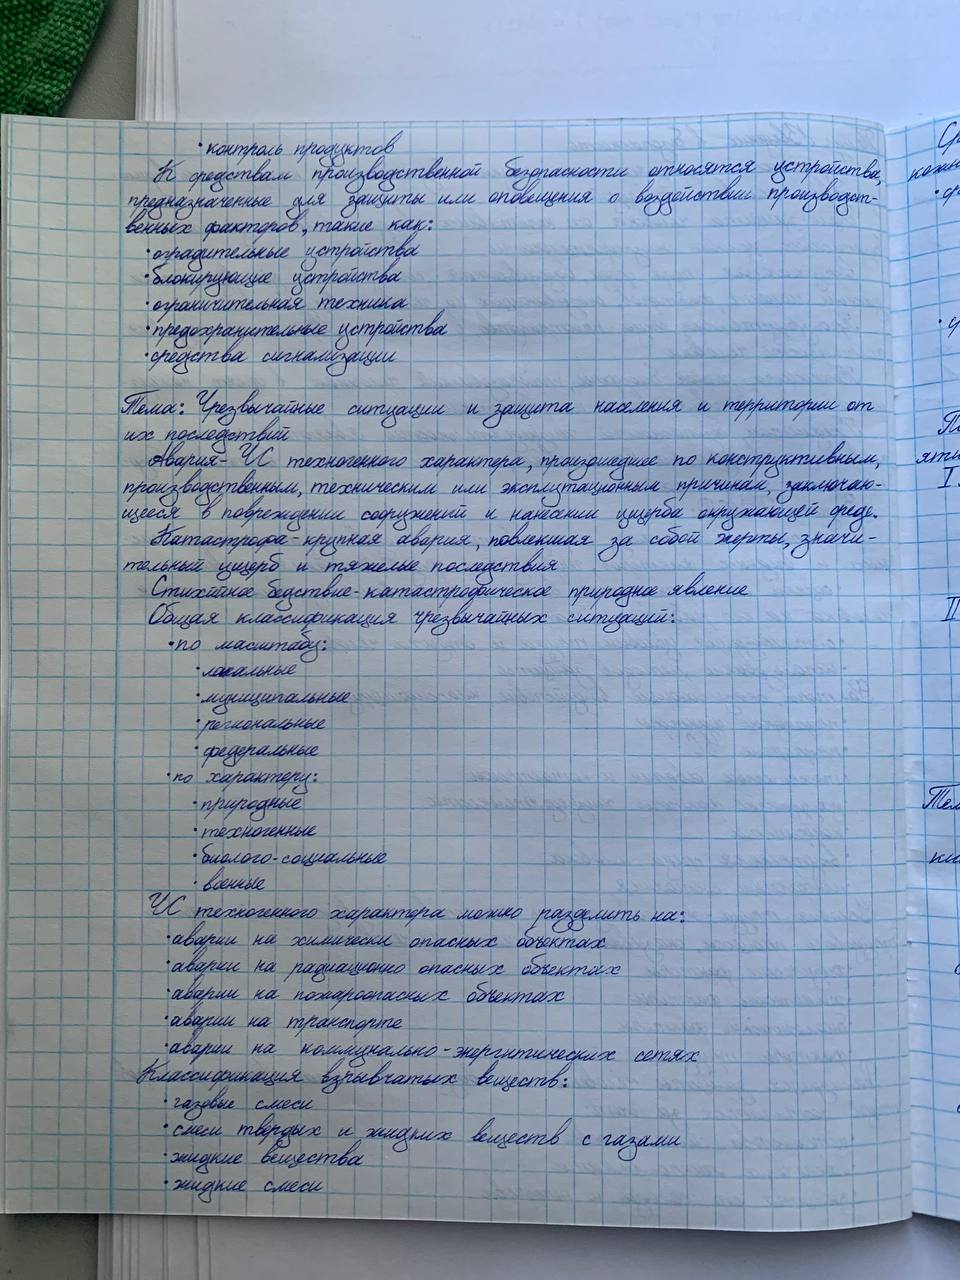 · контроль продуктов
К средствам производственной безопасности относятся устройства,
предназначенные для защиты или оповещения о воздействии производст-
венных факторов, такие как:
· оградительные устройства
· блокирующие устройства
· ограничительная техника
· предохранительные устройства
· средства сигнализации
Тема: Чрезвычайные ситуации и защита населения и территории от
их последствий
Авария - ЧС техногенного характера, произошедшее по конструктивным,
производственным, техническим или эксплутационным причинам, заключаю-
щееся в повреждении сооружений и нанесении ущерба окружающей среде.
Катастрофа - крупная авария, повлекшая за собой жерты, значи-
тельный ущерб и тяжелые последствия
Стихийное бедствие - катастрофическое природное явление
Общая классификация чрезвычайных ситуаций:
· по масштабу:
· локальные
· муниципальные
· региональные
· федеральные
· по характеру:
· природные
· техногенные
· биолого-социальные
· военные
ЧС техногенного характера можно разделить на:
· аварии на химически опасных объектах
· аварии на радиационно опасных объектах
· аварии на пожароопасных объектах
· аварии на транспорте
· аварии на коммунально-энергитических сетях
Классификация взрывчатых веществ:
· газовые смеси
· смеси твердых и жидких веществ с газами
· жидкие вещества
· жидкие смеси
I.
II